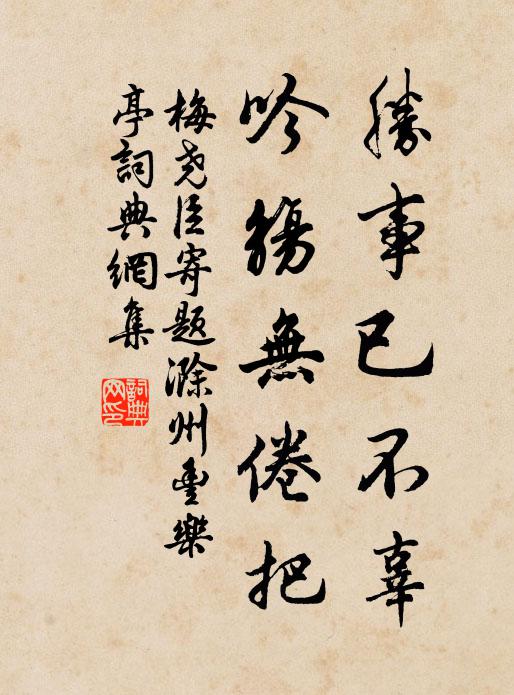 勝事已不辜
吟觴無倦把
梅堯臣寄題滁州豐樂
亭詞典網集
詞典
网印